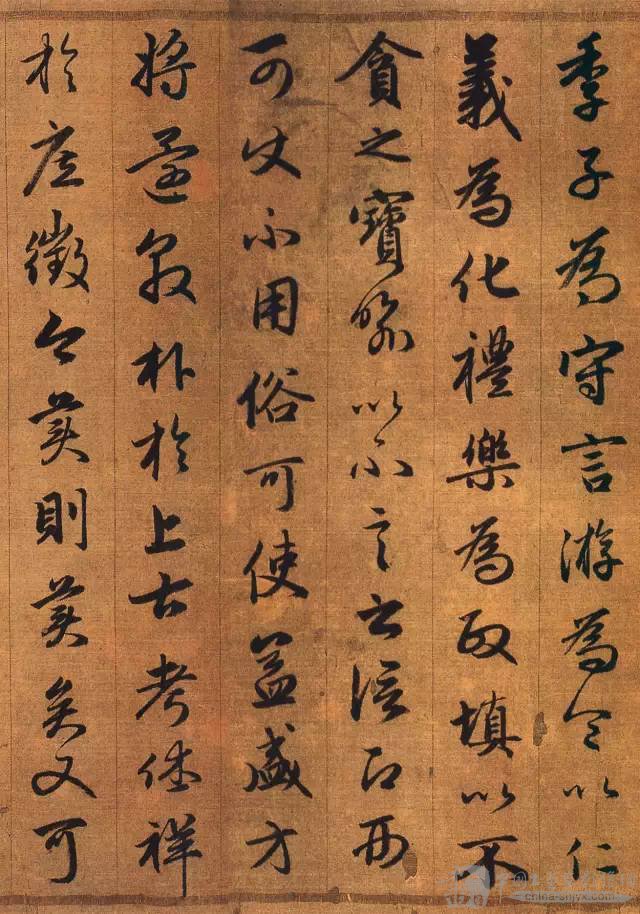 季子為守言游為令以仁
義為化禮樂為政填以不
貪之寶喻以不言之信
可使不用俗可使益盛方
將還敦朴於上古考休祥
於庶徵今美則美矣又可
china-shjyx.com